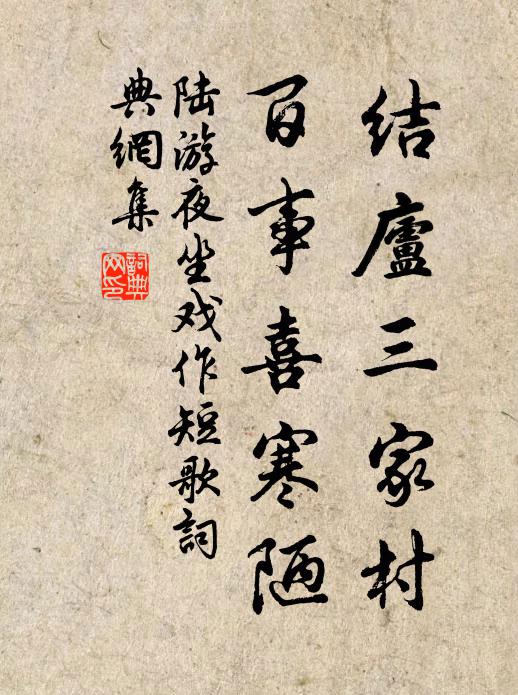 结廬三家村
百事喜寒陋
陆游夜坐戏作短歌詞
典網集
詞典
网印